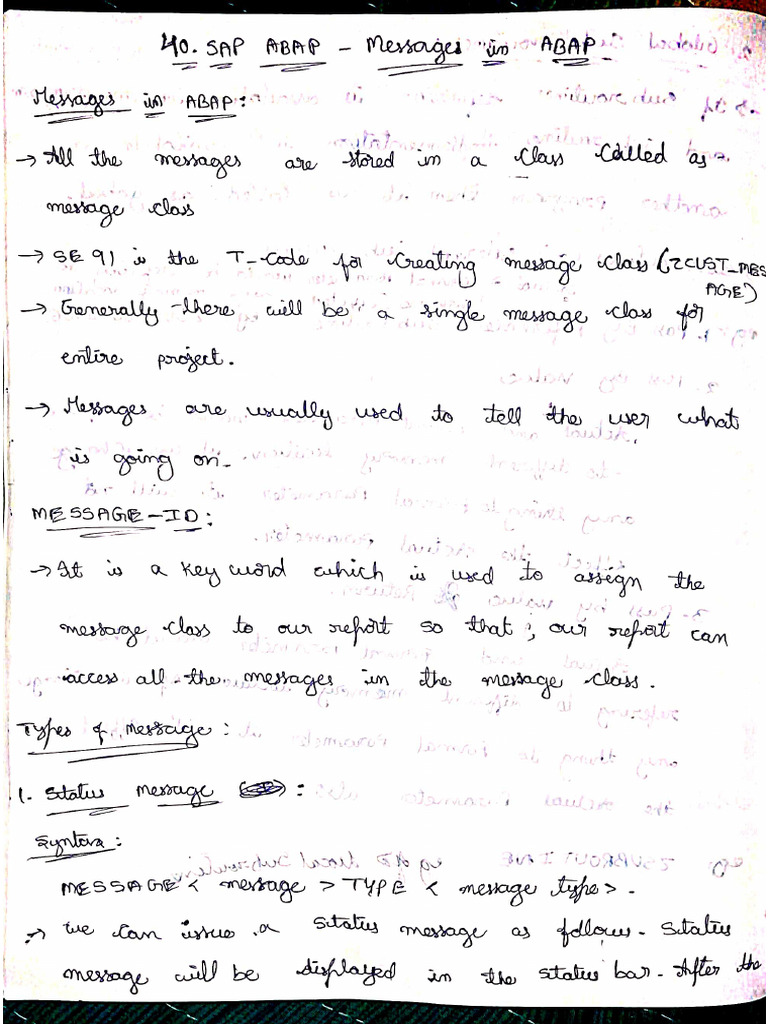 40. SAP ABAP - Messages in ABAP
Messages in ABAP:
→ All the messages are stored in a class called as
message class
→ SE 91 is the T-Code for creating message class (ZCUST_MES
AGE)
→ Generally there will be a single message class for
entire project.
→ Messages are usually used to tell the user what
is going on.
MESSAGE-ID:
→ It is a key word which is used to assign the
message class to our report so that, our report can
access all the messages in the message class.
Types of message:
1. Status message :
Syntax:
MESSAGE < message > TYPE < message type>.
→ we can issue a status message as follow. Status
message will be displayed in the status bar. After the